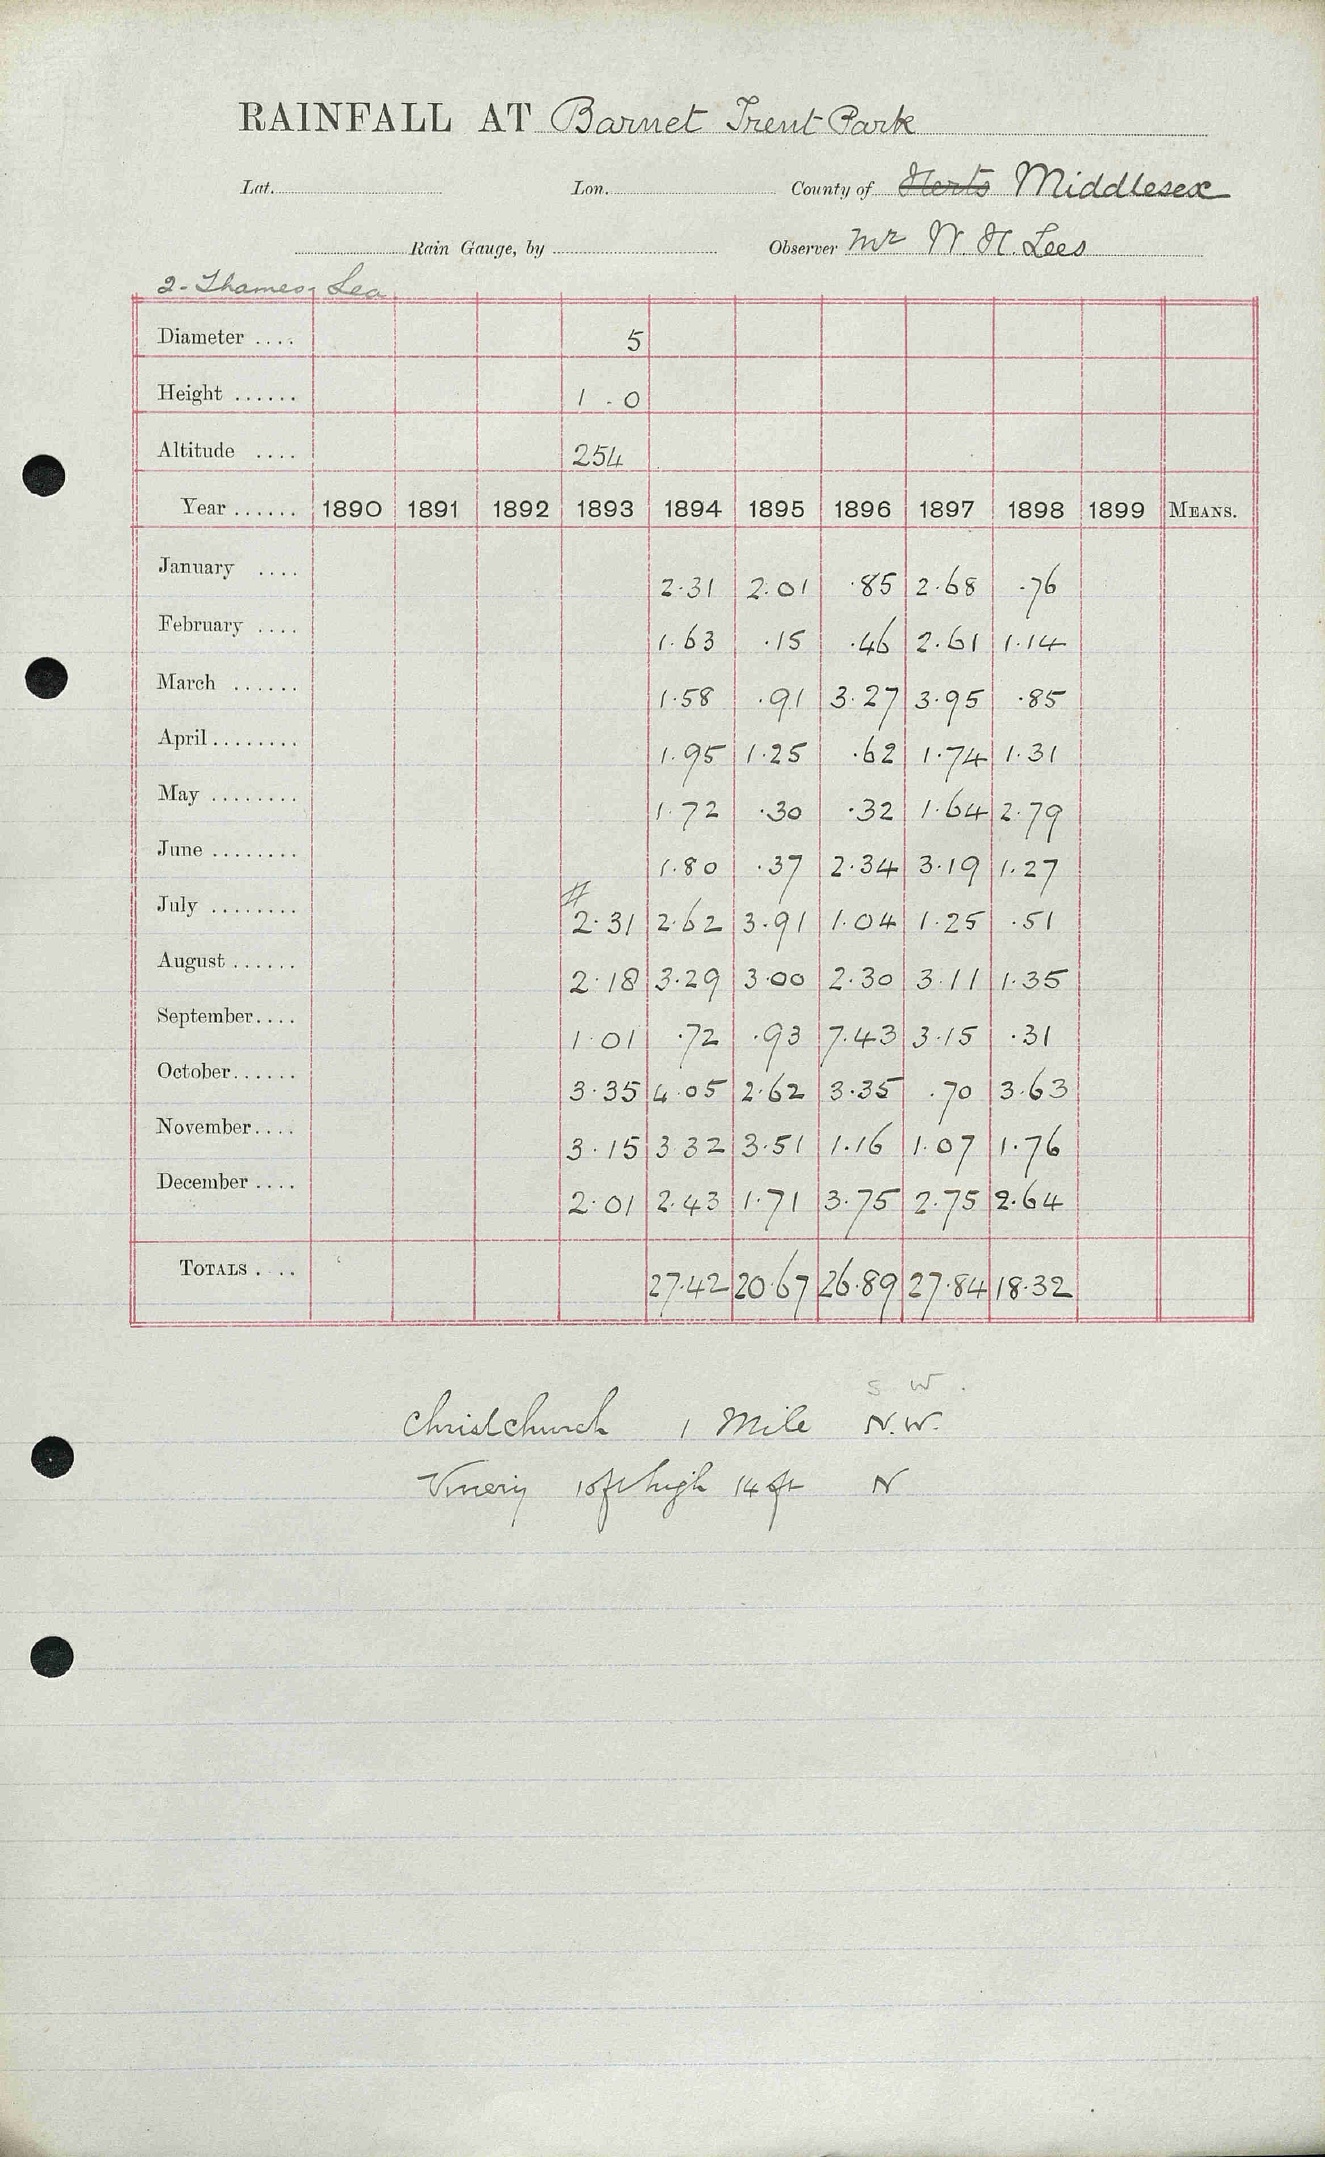 RAINFALL AT Barnet Trent Park
Lat. Lon. County of Herts Middlesex
Rain Gauge, by Observer Mr W. H. Lees
2 - Thames - Lea
Diameter .... 5
Height ...... 1 . 0
Altitude .... 254
Year ...... 1890 1891 1892 1893 1894 1895 1896 1897 1898 1899 MEANS.
January .... 2.31 2.01 .85 2.68 .76
February .... 1.63 .15 .46 2.61 1.14
March ...... 1.58 .91 3.27 3.95 .85
April ........ 1.95 1.25 .62 1.74 1.31
May ........ 1.72 .30 .32 1.64 2.79
June ........ 1.80 .37 2.34 3.19 1.27
#
July ........ 2.31 2.62 3.91 1.04 1.25 .51
August ...... 2.18 3.29 3.00 2.30 3.11 1.35
September.... 1.01 .72 .93 7.43 3.15 .31
October...... 3.35 4.05 2.62 3.35 .70 3.63
November.... 3.15 3.32 3.51 1.16 1.07 1.76
December .... 2.01 2.43 1.71 3.75 2.75 2.64
TOTALS .... 27.42 20.67 26.89 27.84 18.32
S W.
Christchurch 1 Mile N.W.
Vinery 10ft high 14 ft N